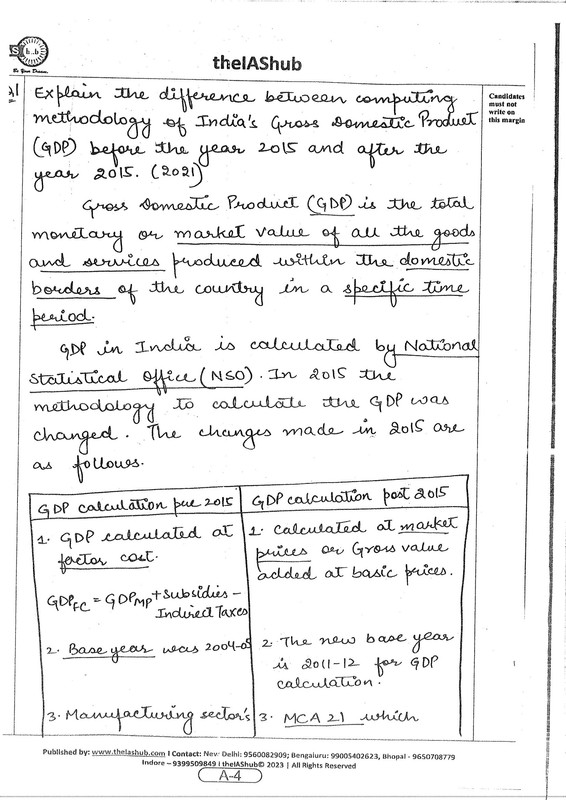 h..b
Be Your Dream.
theIAShub
Candidates
must not
write on
this margin
Explain the difference between computing
methodology of India's Gross Domestic Product
(GDP) before the year 2015 and after the
year 2015. (2021)
Gross Domestic Product (GDP) is the total
monetary or market value of all the goods
and services produced within the domestic
borders of the country in a specific time
period.
GDP in India is calculated by National
Statistical Office (NSO). In 2015 the
methodology to calculate the GDP was
changed. The changes made in 2015 are
as follows.
GDP calculation pre 2015
GDP calculation post 2015
1. GDP calculated at
factor cost.
GDPFC = GDPMP + Subsidies –
Indirect Taxes
1. Calculated at market
prices or Gross value
added at basic prices.
2. Base year was 2004-05
2. The new base year
is 2011-12 for GDP
calculation.
3. Manufacturing sector's
3. MCA 21 which
Published by: www.theIashub.com I Contact: New Delhi: 9560082909; Bengaluru: 99005402623, Bhopal - 9650708779
Indore – 9399509849 I theIAShub© 2023 | All Rights Reserved
A-4